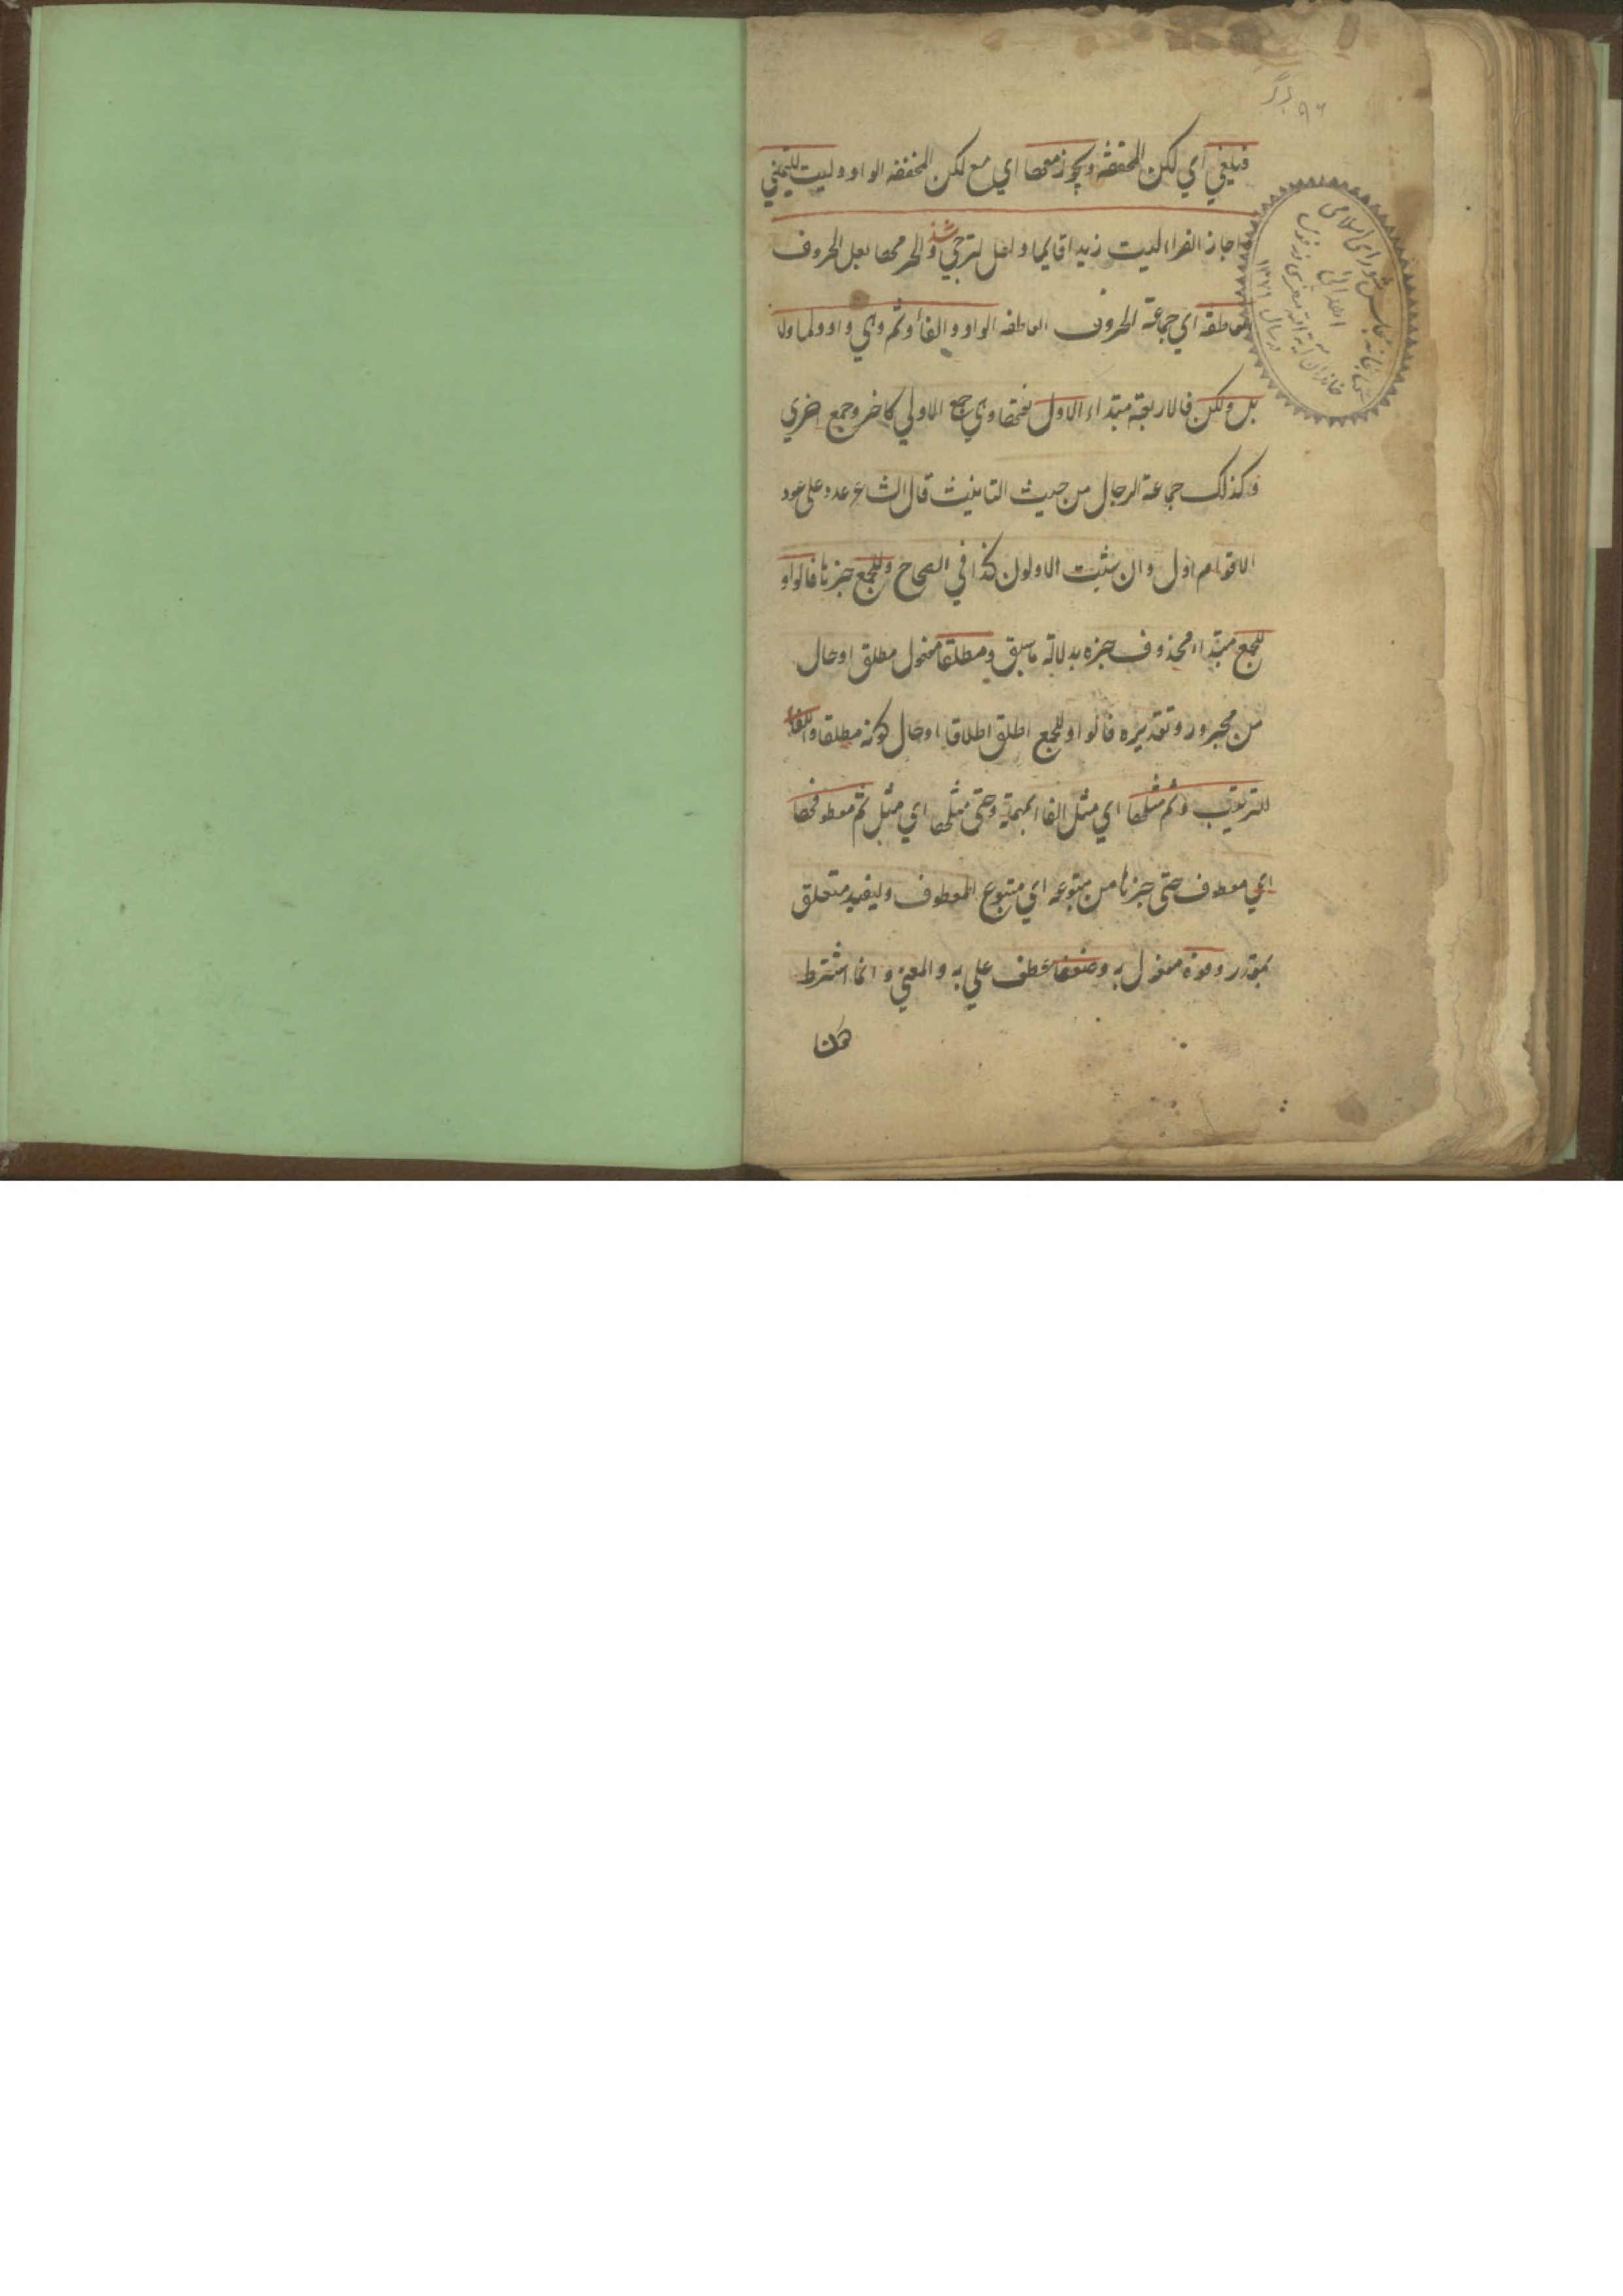 فیلغي اي لكن المخففة ويجوز معها اي مع لكن المخففه الواو وليت للتمني
اجاز الفراء ليت زيدا قايما ولعل لترجي وشذ الجر محها بعل الحروف
العاطفة اي جماعة الحروف العاطفه الواو والفا وثم وحتي واو واما ولا
بل ولكن فالاربعة مبتداء الاول جمع الاولي كاخر وجمع اخري
وكذلك جماعة الرجال من حيث التانيث قال الشاعر عود علي عود
الاقوام اول وان شئت الاولون كذا في الصحاح وللجمع خبرها فالواو
للجمع مبتداء محذوف خبره بدلالة ما سبق ومطلقا مفعول مطلق او حال
من مجرور وتقديره فالواو للجمع اطلق اطلاقا او حال كونه مطلقا والفاء
للترتيب وثم مثلها اي مثل الفا بمهلة وحتي مثلها اي مثل ثم معطوفها
اي معطوف حتي جزءا من متبوعه اي متبوع المعطوف وليفيد متعلق
بمقدر وقوة مفعول به وضعفا عطف علي به والمعني وانما اشترط
كتابخانه مجلس شورای اسلامی
اهدائی
در سال ۱۳۷۱